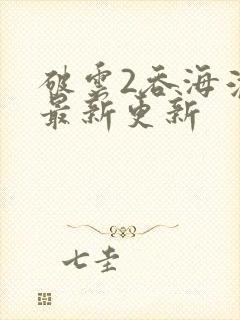 破雲2吞海
最新更新
七圭